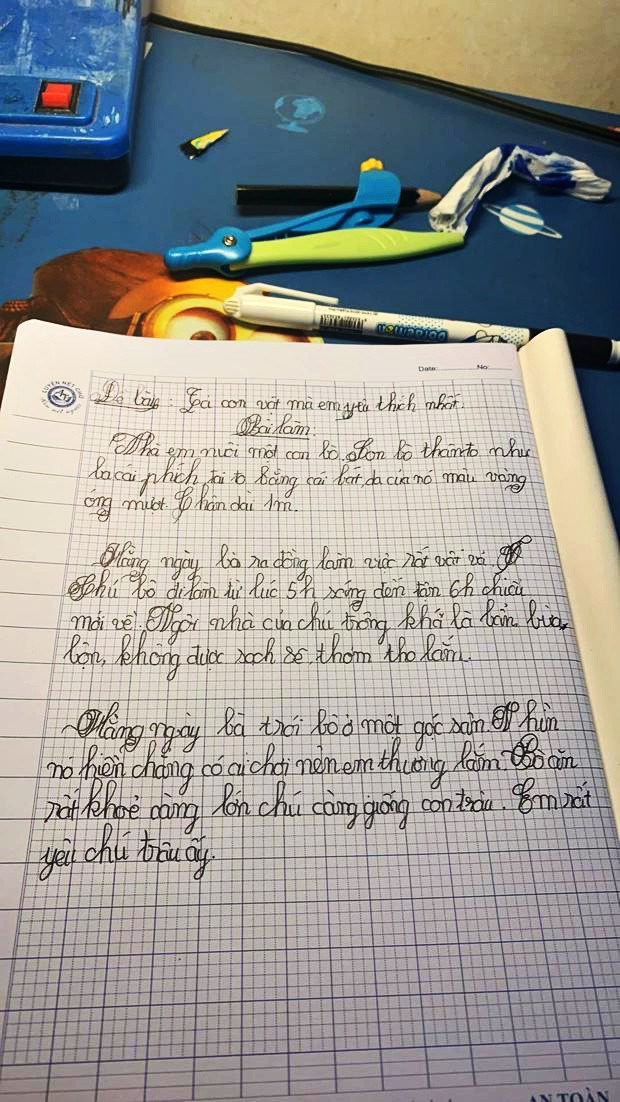 Date: No:
LUYỆN NÉT CHỮ
Đề bài: Tả con vật mà em yêu thích nhất.
Bài làm.
Nhà em nuôi một con bò. Con bò thân to như
là cái phích, tai to bằng cái bát, da của nó màu vàng
óng mượt. Chân dài 1m.
Hằng ngày bò ra đồng làm việc rất vất vả.
Chú bò đi làm từ lúc 5h sáng đến tận 6h chiều
mới về. Ngôi nhà của chú trông khá là bẩn, bừa
bộn, không được sạch sẽ, thơm tho lắm.
Hằng ngày bà trói bò ở một góc sân. Nhìn
nó hiền chẳng có ai chơi nên em thương lắm. Bò ăn
rất khoẻ càng lớn chú càng giống con trâu. Em rất
yêu chú trâu ấy.
AN TOÀN